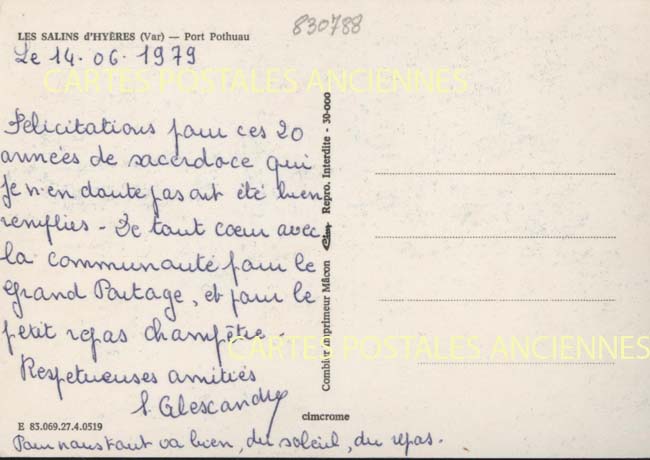 LES SALINS d'HYÈRES (Var) — Port Pothuau
830788
Le 14.06.1979
CARTES POSTALES ANCIENNES
Félicitations pour ces 20
années de sacerdoce qui
je n'en doute pas ont été bien
remplies - De tout coeur avec
la communauté pour le
grand Partage, et pour le
petit repas champêtre.
Respetueuses amitiés
Combier Imprimeur Mâcon Cim Repro. Interdite - 30-000
CARTES POSTALES ANCIENNES
E 83.069.27.4.0519
cimcrome
Pour nous tout va bien, du soleil, du repas.